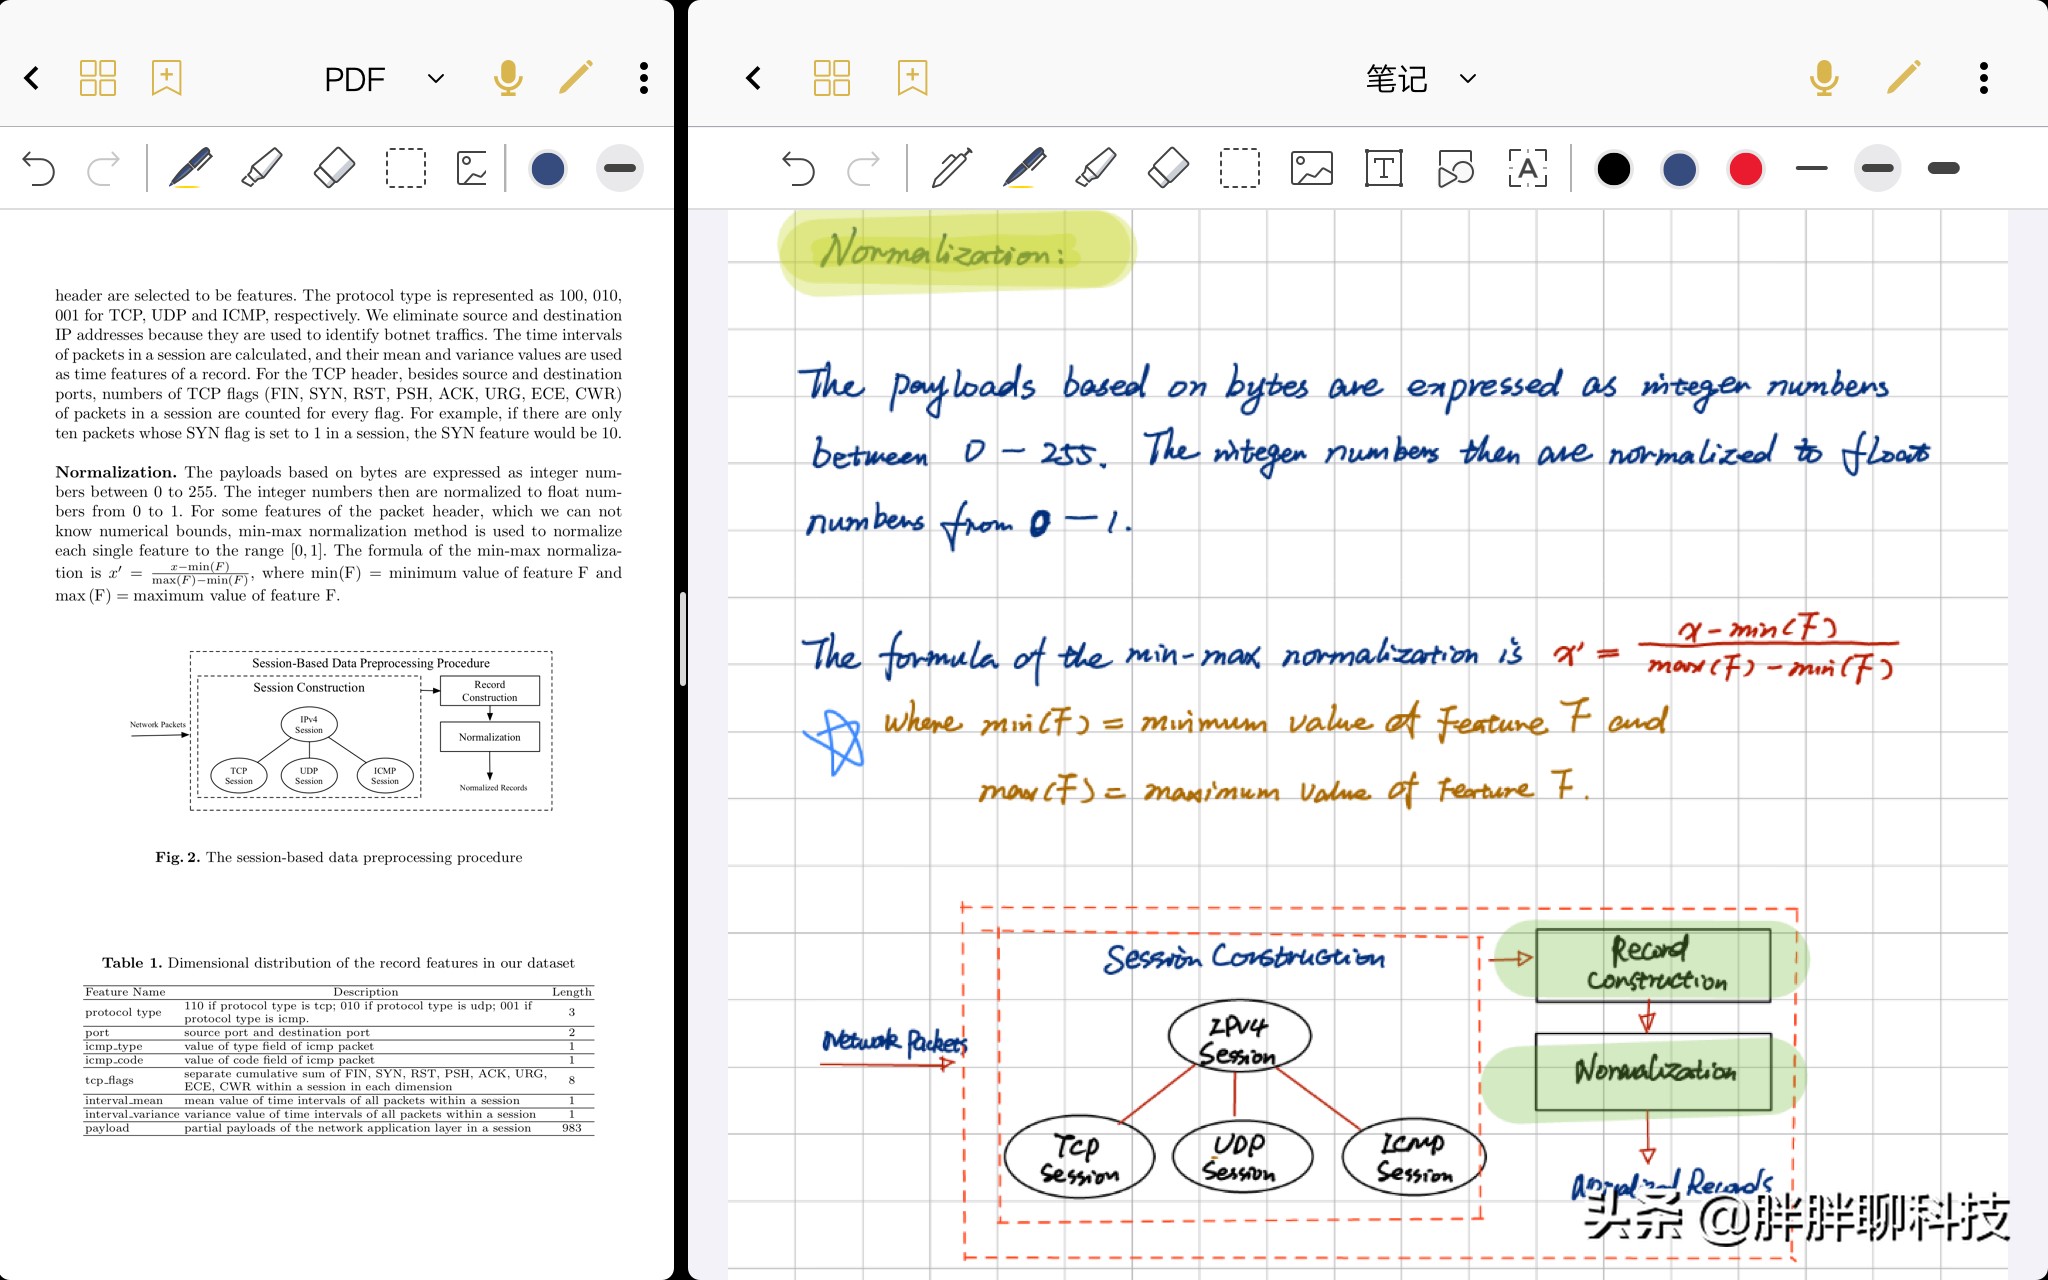 PDF
header are selected to be features. The protocol type is represented as 100, 010,
001 for TCP, UDP and ICMP, respectively. We eliminate source and destination
IP addresses because they are used to identify botnet traffics. The time intervals
of packets in a session are calculated, and their mean and variance values are used
as time features of a record. For the TCP header, besides source and destination
ports, numbers of TCP flags (FIN, SYN, RST, PSH, ACK, URG, ECE, CWR)
of packets in a session are counted for every flag. For example, if there are only
ten packets whose SYN flag is set to 1 in a session, the SYN feature would be 10.
Normalization. The payloads based on bytes are expressed as integer num-
bers between 0 to 255. The integer numbers then are normalized to float num-
bers from 0 to 1. For some features of the packet header, which we can not
know numerical bounds, min-max normalization method is used to normalize
each single feature to the range [0, 1]. The formula of the min-max normaliza-
tion is x′ = x−min(F) / max(F)−min(F), where min(F) = minimum value of feature F and
max (F) = maximum value of feature F.
Session-Based Data Preprocessing Procedure
Session Construction
Record
Construction
Network Packets
IPv4
Session
Normalization
TCP
Session
UDP
Session
ICMP
Session
Normalized Records
Fig. 2. The session-based data preprocessing procedure
Table 1. Dimensional distribution of the record features in our dataset
Feature Name Description Length
protocol type 110 if protocol type is tcp; 010 if protocol type is udp; 001 if protocol type is icmp. 3
port source port and destination port 2
icmp_type value of type field of icmp packet 1
icmp_code value of code field of icmp packet 1
tcp_flags separate cumulative sum of FIN, SYN, RST, PSH, ACK, URG, ECE, CWR within a session in each dimension 8
interval_mean mean value of time intervals of all packets within a session 1
interval_variance variance value of time intervals of all packets within a session 1
payload partial payloads of the network application layer in a session 983
笔记
T
A
Normalization:
The payloads based on bytes are expressed as integer numbers
between 0 – 255. The integer numbers then are normalized to float
numbers from 0 – 1.
The formula of the min-max normalization is x' = x-min(F) / max(F)-min(F)
where min(F) = minimum value of feature F and
max(F) = maximum value of feature F.
Session Construction
Record
Construction
Network Packets
IPv4
Session
Normalization
TCP
Session
UDP
Session
ICMP
Session
Records
头条 @胖胖聊科技